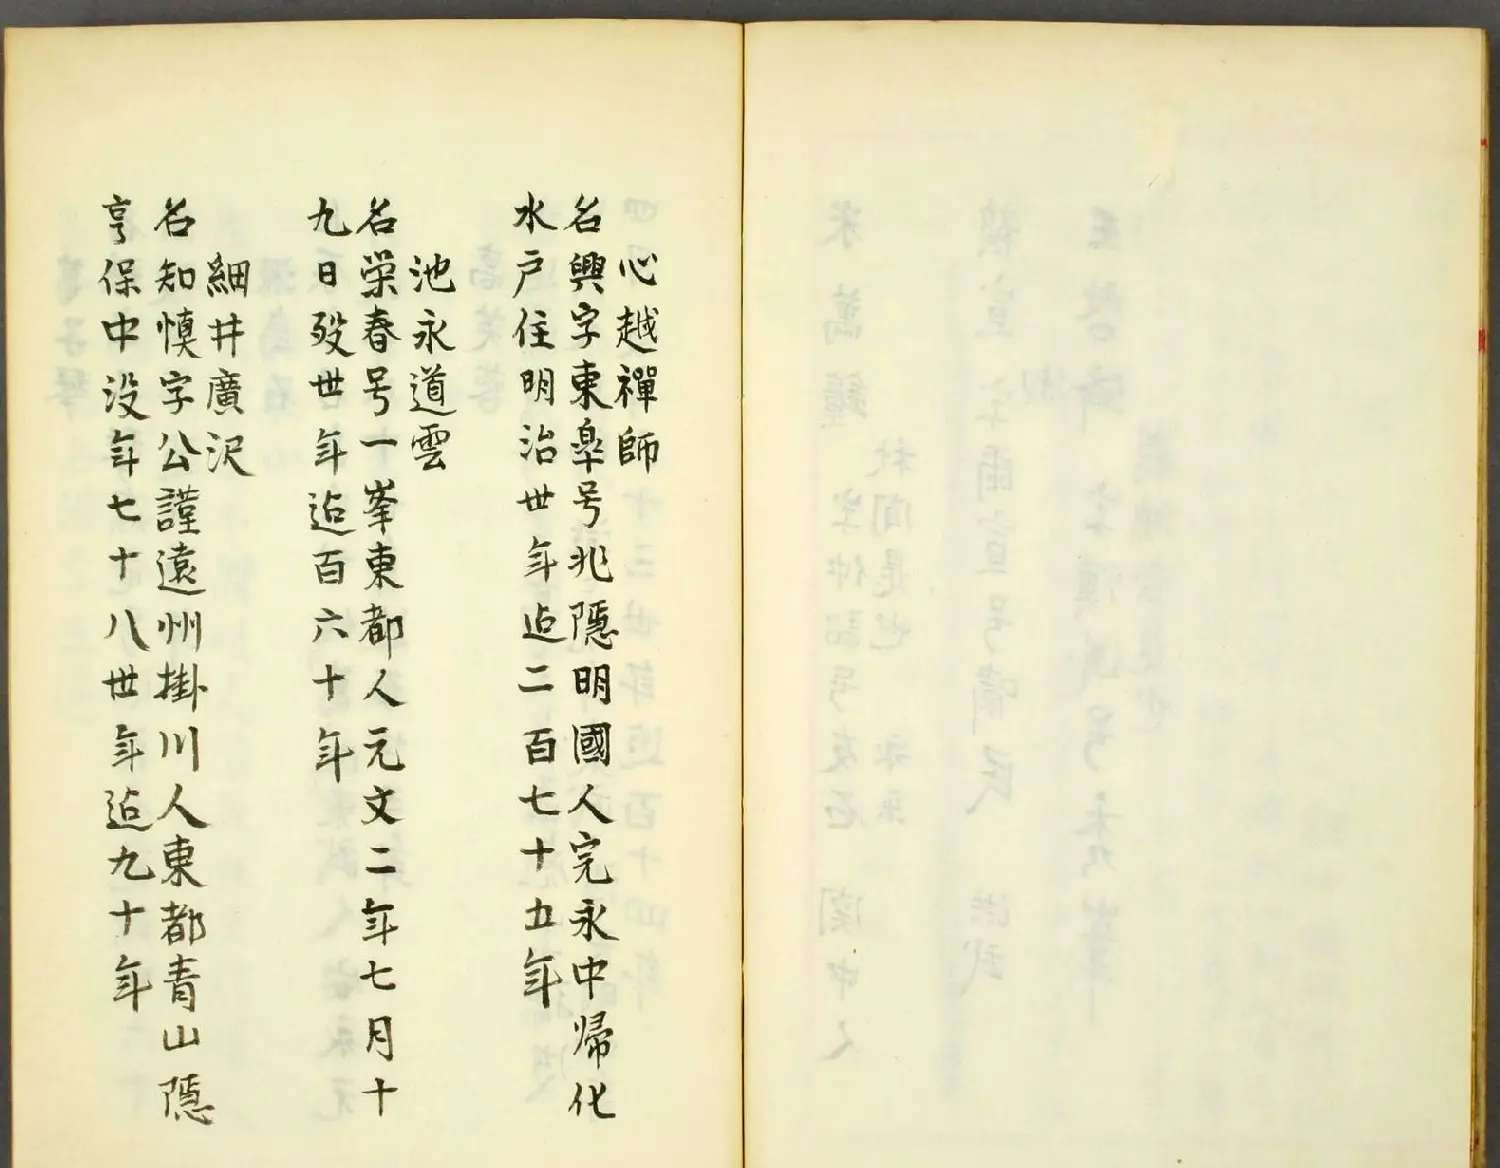 心越禪師
名興字東皐号兆隠明國人完永中帰化
水戸住明治丗年迠二百七十五年
池永道雲
名栄春号一峯東都人元文二年七月十
九日歿丗年迠百六十年
細井廣沢
名知慎字公謹遠州掛川人東都青山隠
亨保中没年七十八丗年迠九十年